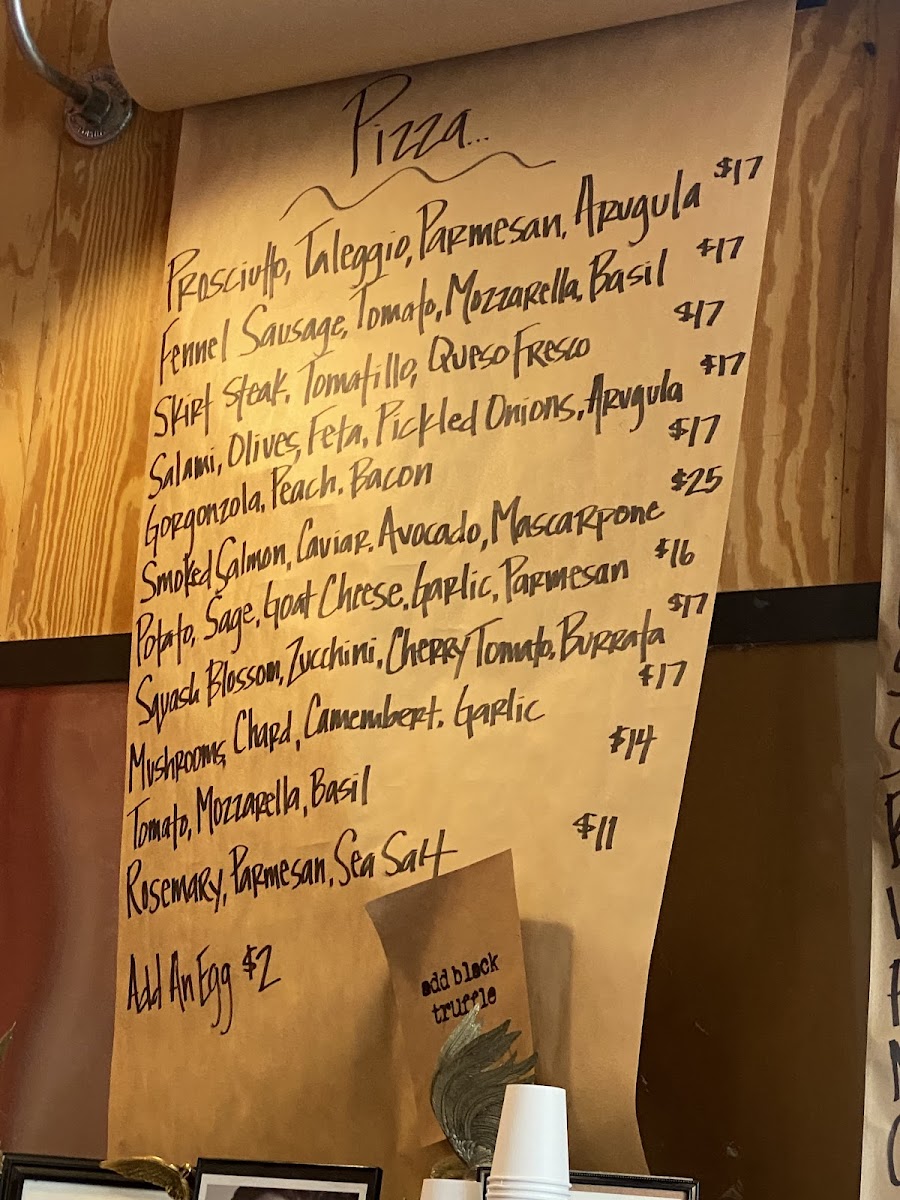 Pizza...
Prosciutto, Taleggio, Parmesan, Arugula $17
Fennel Sausage, Tomato, Mozzarella, Basil $17
Skirt Steak, Tomatillo, Queso Fresco $17
Salami, Olives, Feta, Pickled Onions, Arugula $17
Gorgonzola, Peach, Bacon $17
Smoked Salmon, Caviar, Avocado, Mascarpone $25
Potato, Sage, Goat Cheese, Garlic, Parmesan $16
Squash Blossom, Zucchini, Cherry Tomato, Burrata $17
Mushrooms, Chard, Camembert, Garlic $17
Tomato, Mozzarella, Basil $14
Rosemary, Parmesan, Sea Salt $11
Add An Egg $2
add black
truffle